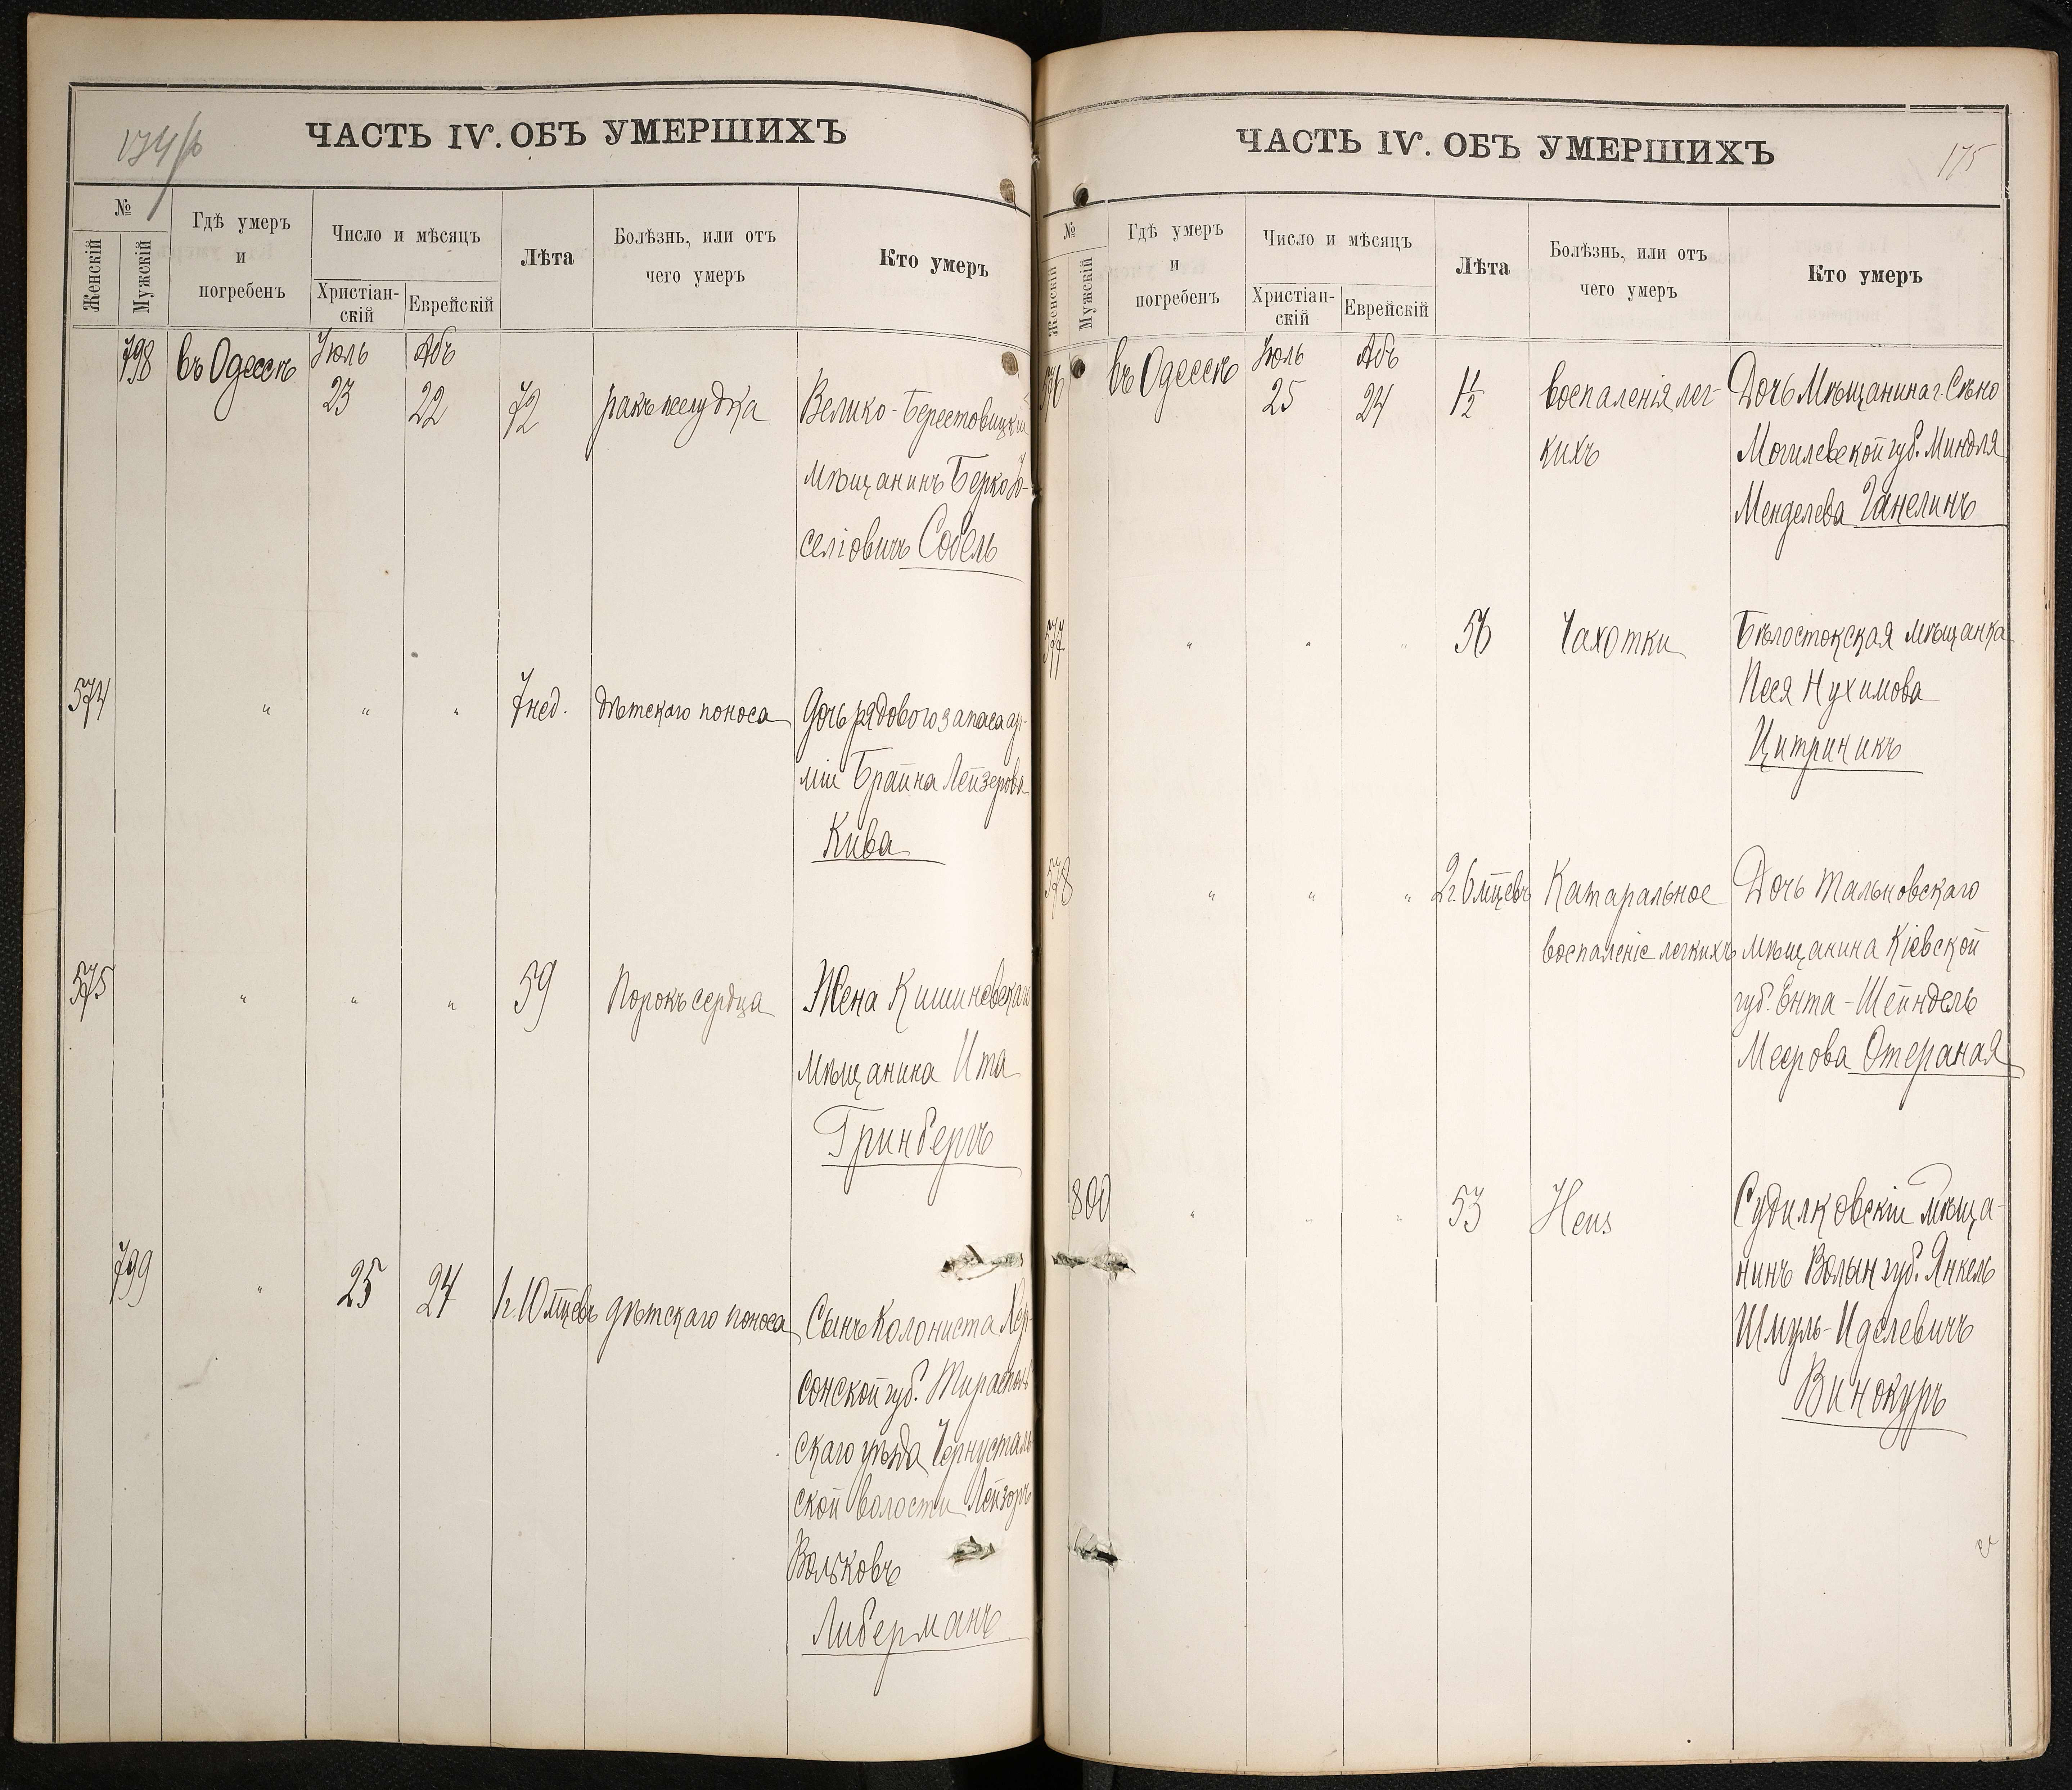 174/б
ЧАСТЬ IV. ОБЪ УМЕРШИХЪ
№
Женскій
Мужскій
Гдѣ умеръ
и
погребенъ
Число и мѣсяцъ
Христіан-
скій
Еврейскій
Лѣта
Болѣзнь, или отъ
чего умеръ
Кто умеръ
798 въ Одессѣ Іюль 23 Абъ 22 72 ракъ желудка Велико-Берестовицкій
мѣщанинъ Берко Іо-
селіовичъ Собель
574 " " " 7 нед. дѣтскаго поноса Дочь рядового запаса ар-
міи Брайна Лейзерова
Кива
575 " " " 59 Порокъ сердца Жена Кишиневскаго
мѣщанина Ита
Гринбергъ
799 " 25 24 1 г. 10 мцевъ дѣтскаго поноса Сынъ колониста Хер-
сонской губ. Тираполь
скаго уѣзда
ской волости Лейзоръ
Вольковъ
Либерманъ
175
ЧАСТЬ IV. ОБЪ УМЕРШИХЪ
№
Женскій
Мужскій
Гдѣ умеръ
и
погребенъ
Число и мѣсяцъ
Христіан-
скій
Еврейскій
Лѣта
Болѣзнь, или отъ
чего умеръ
Кто умеръ
576 въ Одессѣ Іюль 25 Абъ 24 1½ воспаленія лег- Дочь Мѣщанина г. Сѣно
кихъ Могилевской губ. Миндля
Менделева Ганелинъ
577 " " " 56 Чахотки Бѣлостокская мѣщанка
Песя Нухимова
Цитриникъ
578 " " " 2 г. 6 мцевъ Катаральное Дочь Тальновскаго
воспаленіе легкихъ мѣщанина Кіевской
губ. Ента-Шейндель
Меерова
800 " " " 53 Судилковскій мѣща-
нинъ Волын губ. Янкель
Шмуль-Иделевичъ
Винокуръ